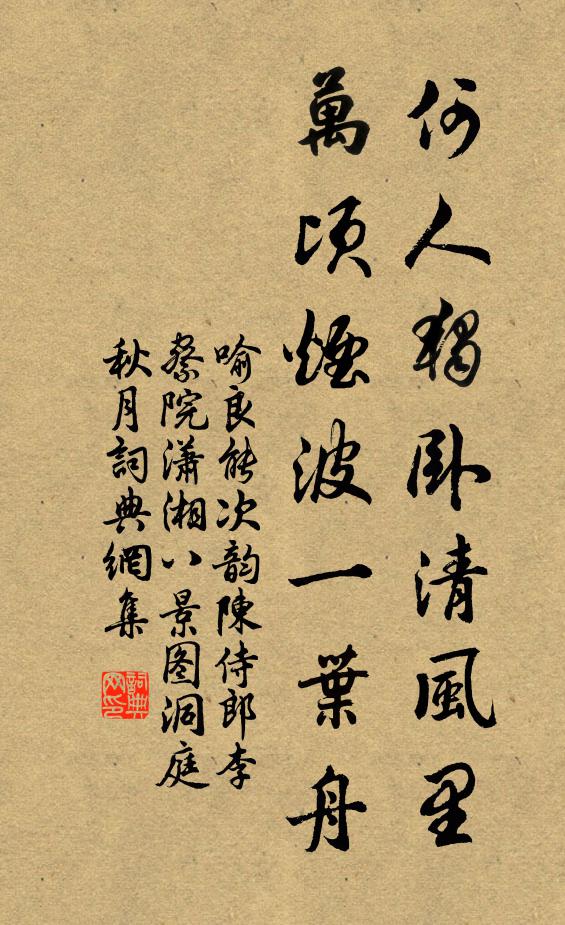 何人獨卧清風里
萬頃煙波一葉舟
喻良能次韵陳侍郎李
察院瀟湘八景图洞庭
秋月詞典網集
詞典
网印